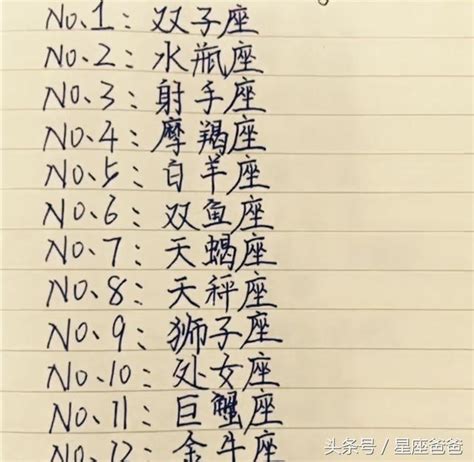 No.1：双子座
No.2：水瓶座
No.3：射手座
No.4：摩羯座
No.5：白羊座
No.6：双鱼座
No.7：天蝎座
No.8：天秤座
No.9：狮子座
No.10：处女座
No.11：巨蟹座
No.12：金牛座
头条号/星座爸爸